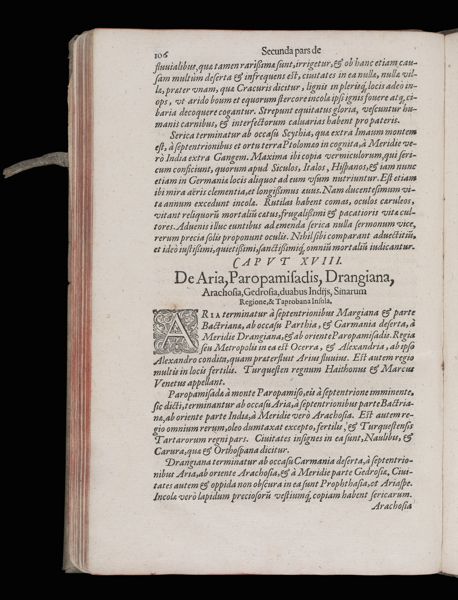 106
Secunda pars de
fluvialibus, quæ tamen rarißimæ sunt, irrigetur, & ob hanc etiam cau-
sam multùm deserta & infrequens est, ciuitates in ea nullæ, nullæ vil-
læ, præter vnam, quæ Cracuris dicitur, lignis in plerisq; locis adeo in-
ops, vt arido boum et equorum stercore incolæ ipsi ignis fouere atq; ci-
baria decoquere cogantur. Strepunt equitatus gloria, vescuntur hu-
manis carnibus, & interfectorum caluarias habent pro pateris.
Serica terminatur ab occasu Scythia, quæ extra Imaum montem
est, à septentrionibus et ortu terra Ptolomæo incognita, à Meridie ve-
rò India extra Gangem. Maxima ibi copia vermiculorum, qui seri-
cum conficiunt, quorum apud Siculos, Italos, Hispanos, & iam nunc
etiam in Germania locis aliquot ad eum vsum nutriuntur. Est etiam
ibi mira aëris clementia, et longißimus æuus. Nam ducentesimum vi-
tæ annum excedunt incolæ. Rutilas habent comas, oculos cæruleos,
vitant reliquorū mortaliū cœtus, frugalißimi & pacatioris vitæ cul-
tores. Aduenis illuc euntibus ad emenda serica nulla sermonum vice,
rerum precia solis proponunt oculis. Nihil sibi comparant aduectitiū,
et ideò iustißimi, quietißimi, sanctißimiq; omniū mortaliū iudicantur.
CAPVT XVIII.
De Aria, Paropamisadis, Drangiana,
Arachosia, Gedrosia, duabus Indijs, Sinarum
Regione, & Taprobana Insula.
ARIA terminatur à septentrionibus Margiana & parte
Bactrianæ, ab occasu Parthia, & Carmania deserta, à
Meridie Drangiana, & ab oriente Paropamisadis. Regia
seu Metropolis in ea est & Alexandria, ab ipso
Alexandro condita, quam præterfluit Arius fluuius. Est autem regio
multis in locis fertilis. Turquesten regnum Haithonus & Marcus
Venetus appellant.
Paropamisadæ à monte Paropamiso, eis à septentrione imminente,
sic dicti, terminantur ab occasu Aria, à septentrionibus parte Bactria-
næ, ab oriente parte Indiæ, à Meridie verò Arachosia. Est autem re-
gio omnium rerum, oleo dumtaxat excepto, fertilis, & Turquestensis
Tartarorum regni pars. Ciuitates insignes in ea sunt, Naulibus, &
Carura, quæ & Orthospana dicitur.
Drangiana terminatur ab occasu Carmania deserta, à septentrio-
nibus Aria, ab oriente Arachosia, & à Meridie parte Gedrosiæ, Ciui-
tates autem & oppida non obscura in ea sunt Prophthasia, et Ariaspe.
Incolæ verò lapidum preciosorū vestiumq; copiam habent sericarum.
Arachosia